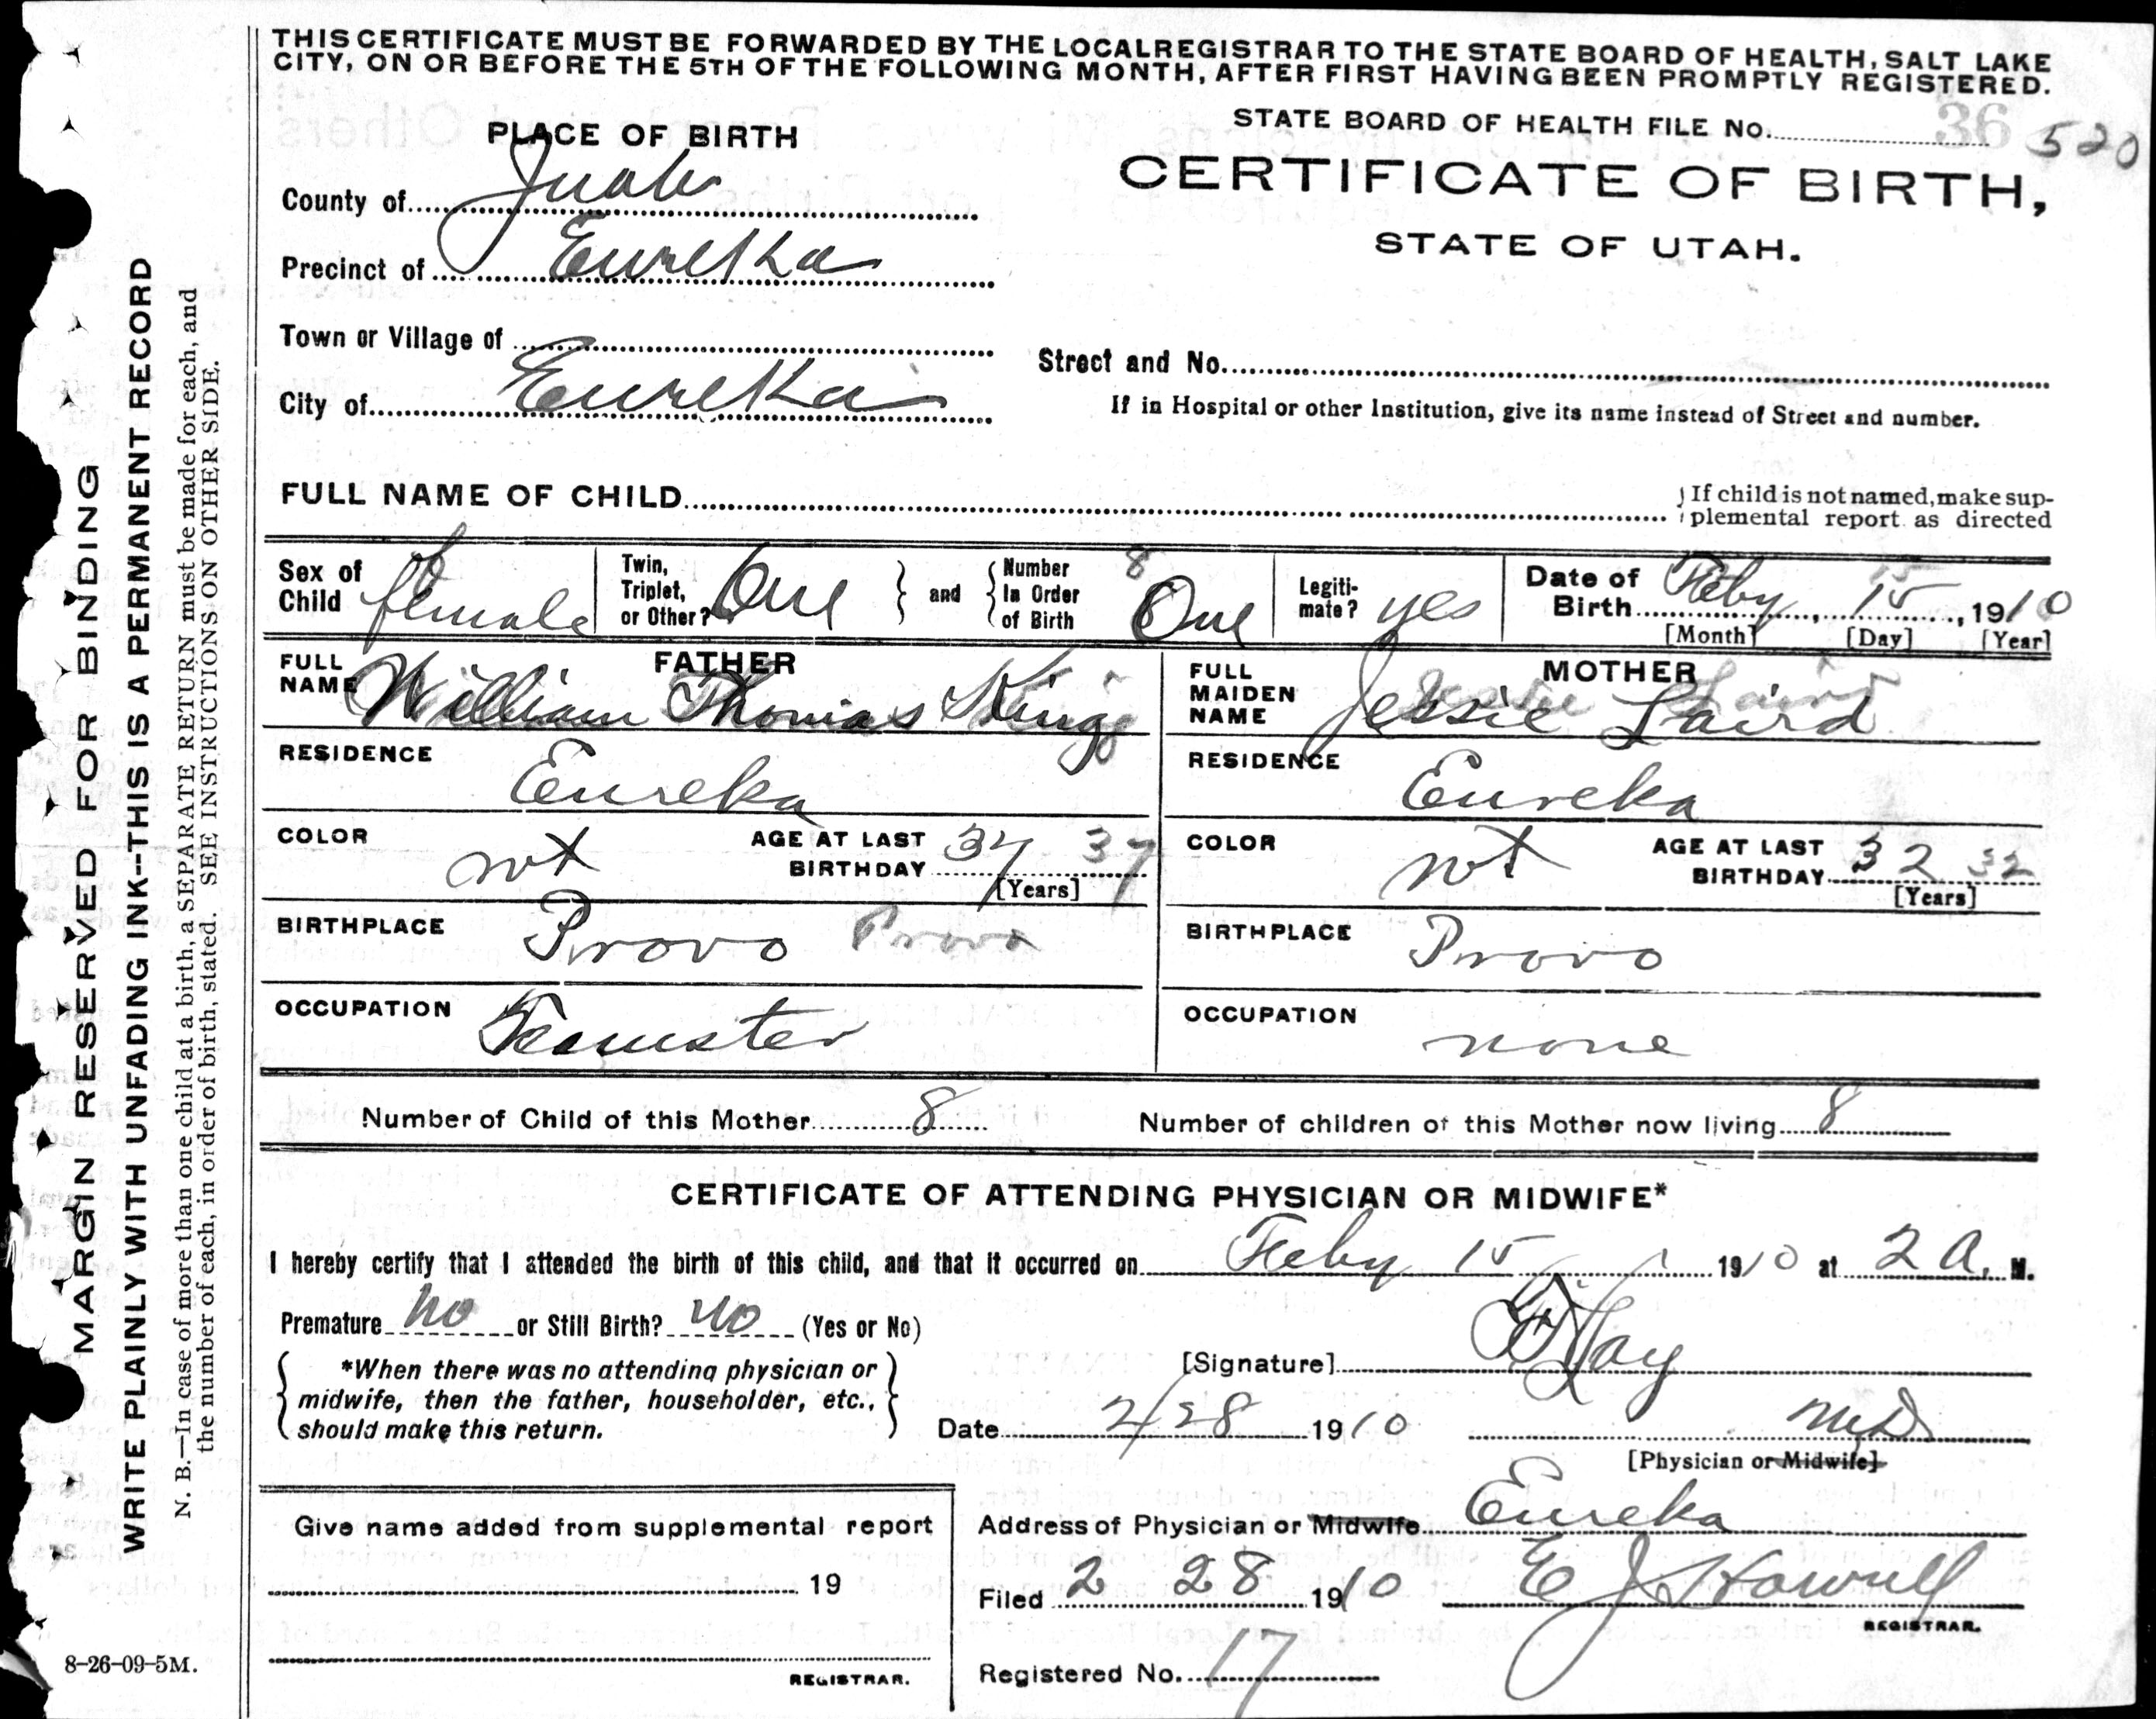 THIS CERTIFICATE MUST BE FORWARDED BY THE LOCAL REGISTRAR TO THE STATE BOARD OF HEALTH, SALT LAKE
CITY, ON OR BEFORE THE 5TH OF THE FOLLOWING MONTH, AFTER FIRST HAVING BEEN PROMPTLY REGISTERED.
STATE BOARD OF HEALTH FILE No. 36 520
CERTIFICATE OF BIRTH,
STATE OF UTAH.
PLACE OF BIRTH
County of Juab
Precinct of Eureka
Town or Village of
City of Eureka
Street and No.
If in Hospital or other Institution, give its name instead of Street and number.
FULL NAME OF CHILD
If child is not named, make sup-
plemental report as directed
Sex of Child female
Twin, Triplet, or Other? One
and
Number In Order of Birth 8 One
Legiti-mate? yes
Date of Birth Feby 15 15, 1910
[Month] [Day] [Year]
FATHER
FULL NAME William Thomas King
RESIDENCE Eureka
COLOR wt
AGE AT LAST BIRTHDAY 37 37
[Years]
BIRTHPLACE Provo Provo
OCCUPATION Teamster
MOTHER
FULL MAIDEN NAME Jessie Laird
RESIDENCE Eureka
COLOR wt
AGE AT LAST BIRTHDAY 32 32
[Years]
BIRTHPLACE Provo
OCCUPATION none
Number of Child of this Mother 8
Number of children of this Mother now living 8
CERTIFICATE OF ATTENDING PHYSICIAN OR MIDWIFE*
I hereby certify that I attended the birth of this child, and that it occurred on Feby 15 1910 at 2 A. M.
Premature no or Still Birth? no (Yes or No)
*When there was no attending physician or
midwife, then the father, householder, etc.,
should make this return.
[Signature]
Date 2/28 1910 MD
[Physician or Midwife]
Give name added from supplemental report
19
REGISTRAR.
Address of Physician or Midwife Eureka
Filed 2 28 1910 E J Howell
REGISTRAR.
Registered No. 17
8-26-09-5M.
MARGIN RESERVED FOR BINDING
WRITE PLAINLY WITH UNFADING INK--THIS IS A PERMANENT RECORD
N. B.—In case of more than one child at a birth, a SEPARATE RETURN must be made for each, and
the number of each, in order of birth, stated. SEE INSTRUCTIONS ON OTHER SIDE.